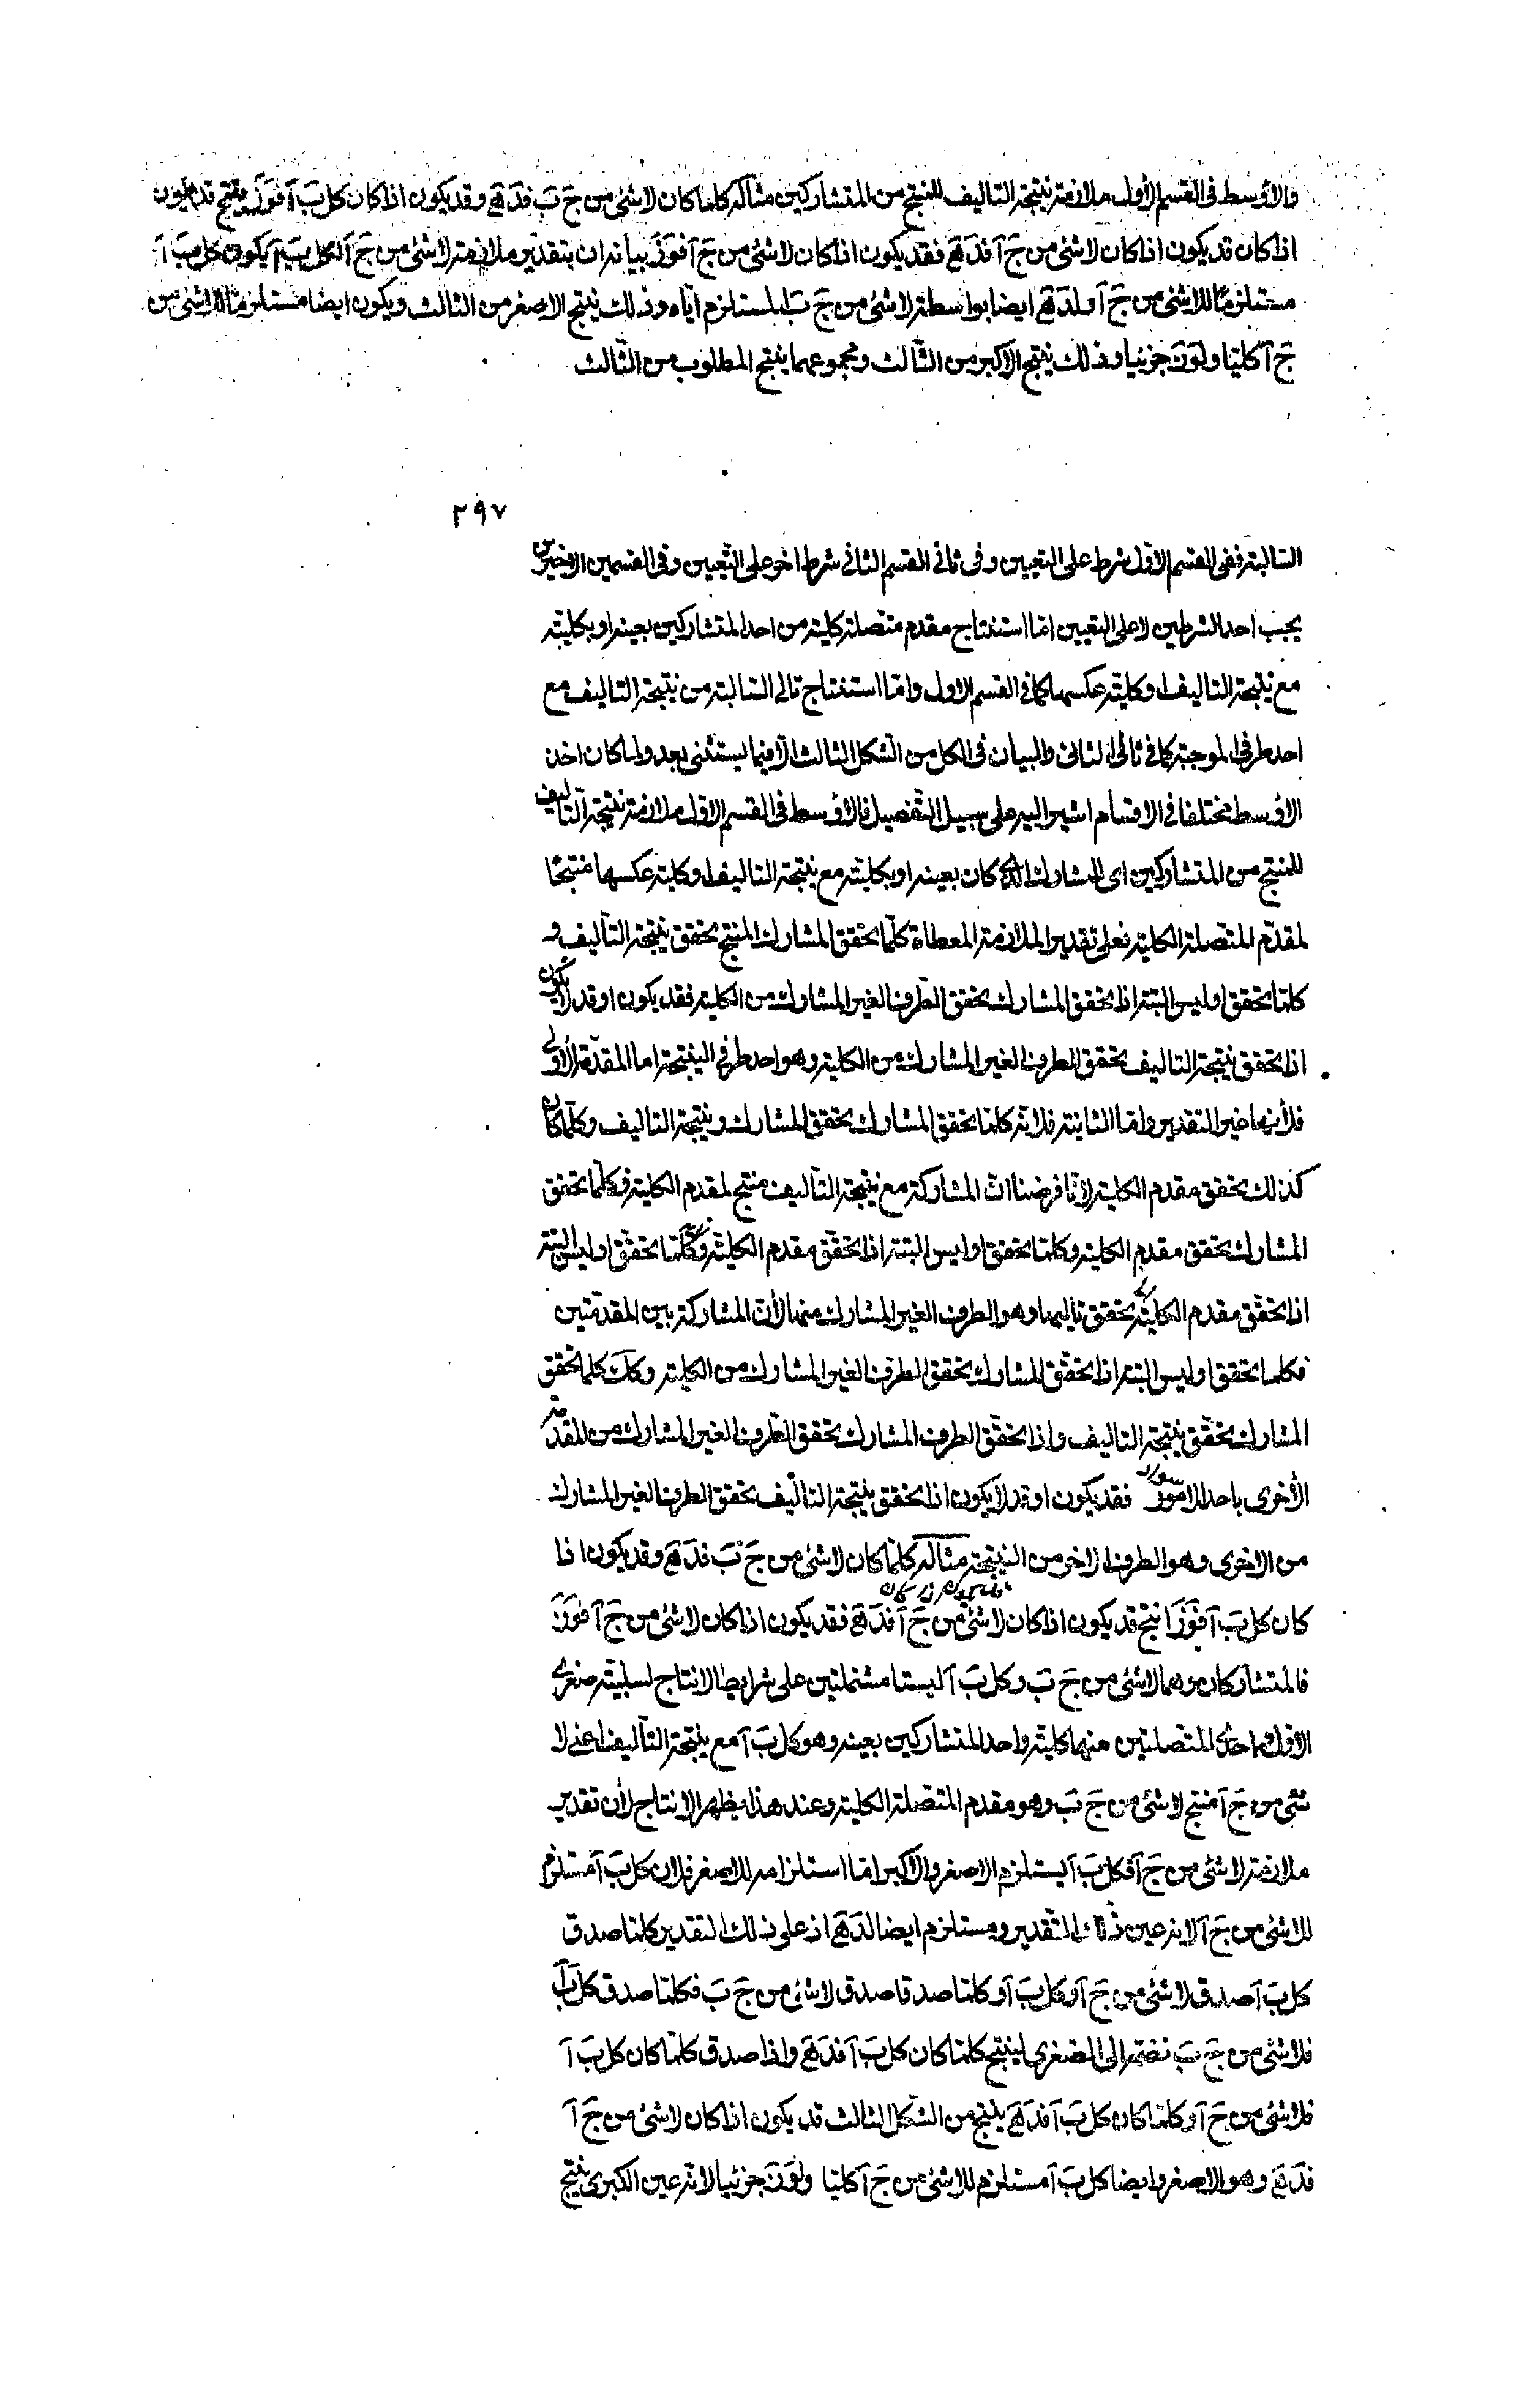 والأوسط فى القسم الأول ملازمة نتيجة التاليف للمنتج من المتشاركين مثاله كلما كان لا شئ من جَ بَ فدَ هَ وقد يكون اذا كان كل بَ آ فوَ زَ ينتج قد يكون
اذا كان قد يكون اذا كان لا شئ من جَ آ فدَ هَ فقد يكون اذا كان لا شئ من جَ آ فوَ زَ بيانه ان بتقدير ملازمة لا شئ من جَ آ لكل بَ آ يكون كل بَ آ
مستلزما للا شئ من جَ آ ولدَ هَ ايضا بواسطة لا شئ من جَ بَ المستلزم اياه وذلك ينتج الاصغر من الثالث ويكون ايضا مستلزما للا شئ من
جَ آ كليا ولوَ زَ جزئيا وذلك ينتج الاكبر من الثالث ومجموعهما ينتج المطلوب من الثالث
٢٩٧
السالبة ففى القسم الاول شرط على التعيين وفى ثانى القسم الثانى شرط اخر على التعيين وفى القسمين الاخيرين
يجب احد الشرطين لا على التعيين اما استنتاج مقدم متصلة كلية من احد المتشاركين بعينه او بكليته
مع نتيجة التاليف او كلية عكسها كما فى القسم الاول واما استنتاج تالى السالبة من نتيجة التاليف مع
احد طرفى الموجبة كما فى ثانى الثانى والبيان فى الكل من الشكل الثالث الا فيما يستثنى بعد ولما كان اخذ
الأوسط مختلفا فى الاقسام اشير اليه على سبيل التفصيل فالأوسط فى القسم الاول ملازمة نتيجة التاليف
للمنتج من المتشاركين اى المشارك الذى كان بعينه او بكليته مع نتيجة التاليف او كلية عكسها منتجًا
لمقدم المتصلة الكلية فعلى تقدير الملازمة المعطاة كلما تحقق المشارك المنتج تحقق نتيجة التاليف و
كلما تحقق او ليس البتة اذا تحقق المشارك تحقق الطرف الغير المشارك من الكلية فقد يكون او قد لا يكون
اذا تحقق نتيجة التاليف تحقق الطرف الغير المشارك من الكلية وهو احد طرفى النتيجة اما المقدمة الأولى
فلأنها عين التقدير واما الثانية فلانه كلما تحقق المشارك تحقق المشارك ونتيجة التاليف وكلما كان
كذلك تحقق مقدم الكلية لأنا فرضنا ان المشاركة مع نتيجة التاليف منتج لمقدم الكلية فكلما تحقق
المشارك تحقق مقدم الكلية وكلما تحقق او ليس البتة اذا تحقق مقدم الكلية وكلما تحقق او ليس البتة
اذا تحقق مقدم الكلية تحقق تاليها وهو الطرف الغير المشارك منها لأن المشاركة بين المقدمتين
فكلما تحقق او ليس البتة اذا تحقق المشارك تحقق الطرف الغير المشارك من الكلية وكان كلما تحقق
المشارك تحقق نتيجة التاليف واذا تحقق الطرف المشارك تحقق الطرف الغير المشارك من المقدمة
الأخرى باحد الامور فقد يكون او قد لا يكون اذا تحقق نتيجة التاليف تحقق الطرف الغير المشارك
من الاخرى وهو الطرف الاخر من النتيجة مثاله كلما كان لا شئ من جَ بَ فدَ هَ وقد يكون اذا
كان كل بَ آ فوَ زَ انتج قد يكون اذا كان لا شئ من جَ آ فدَ هَ فقد يكون اذا كان لا شئ من جَ آ فوَ زَ
فالمتشاركان وهما لا شئ من جَ بَ وكل بَ آ ليستا مشتملتين على شرايط الانتاج لسلبية صغرى
الاول واحدى المتصلتين منهما كلية واحد المتشاركين بعينه وهو كل بَ آ مع نتيجة التاليف اعنى لا
شئ من جَ آ منتج لا شئ من جَ بَ وهو مقدم المتصلة الكلية وعند هذا يظهر الانتاج لأن تقدير
ملازمة لا شئ من جَ آ فكل بَ آ يستلزم الاصغر والاكبر اما استلزامه للاصغر فلان كل بَ آ مستلزم
للا شئ من جَ آ لانه عين ذلك التقدير ومستلزم ايضا لدَ هَ اذ على ذلك التقدير كلما صدق
كل بَ آ صدق لا شئ من جَ آ وكل بَ آ وكلما صدقا صدق لا شئ من جَ بَ فكلما صدق كل بَ آ
فلا شئ من جَ بَ نضمه الى الصغرى لينتج كلما كان كل بَ آ فدَ هَ واذا صدق كلما كان كل بَ آ
فلا شئ من جَ آ وكلما كان كل بَ آ فدَ هَ ينتج من الشكل الثالث قد يكون اذا كان لا شئ من جَ آ
فدَ هَ وهو الاصغر وايضا كل بَ آ مستلزم للا شئ من جَ آ كليا ولوَ زَ جزئيا لانه عين الكبرى ينتج